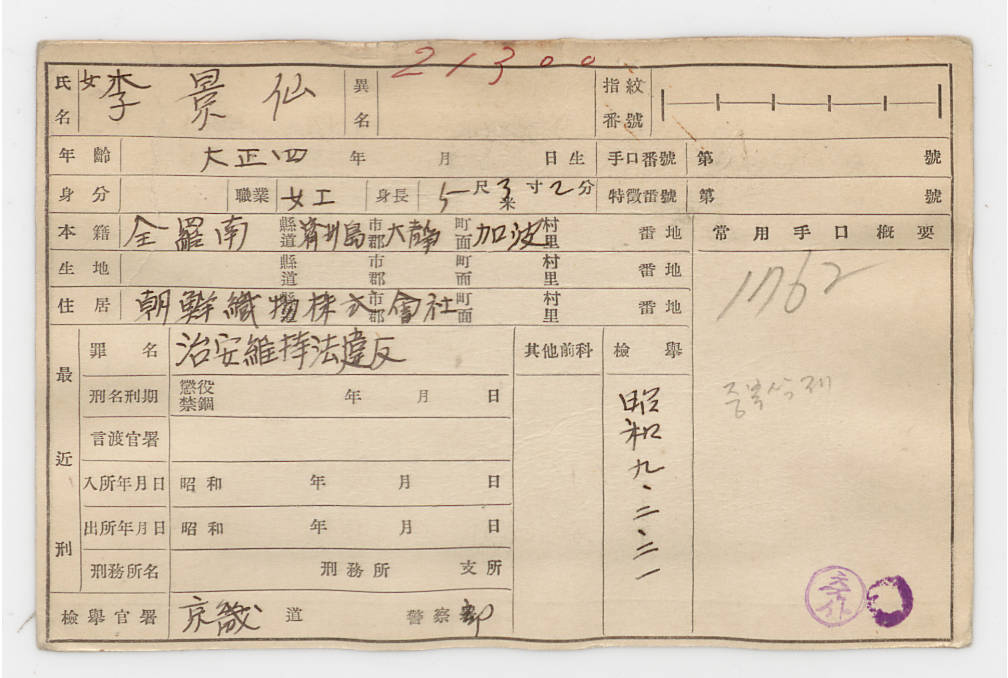 21300
氏名 女 李景仙 異名 指紋番號
年齡 大正四年 月 日生 手口番號 第 號
身分 職業 女工 身長 5尺3寸2分 米 特徵番號 第 號
本籍 全羅南 縣道 濟州島 市郡 大靜 町面 加波 村里 番地 常用手口槪要
生地 縣道 市郡 町面 村里 番地
1762
住居 朝鮮織物株式會社 縣道 市郡 町面 村里 番地
最近刑
罪名 治安維持法違反 其他前科 檢擧
刑名刑期 懲役 禁錮 年 月 日
昭和九、二、二一
중복삭제
言渡官署
入所年月日 昭和 年 月 日
出所年月日 昭和 年 月 日
刑務所名 刑務所 支所
檢擧官署 京畿道 警察部